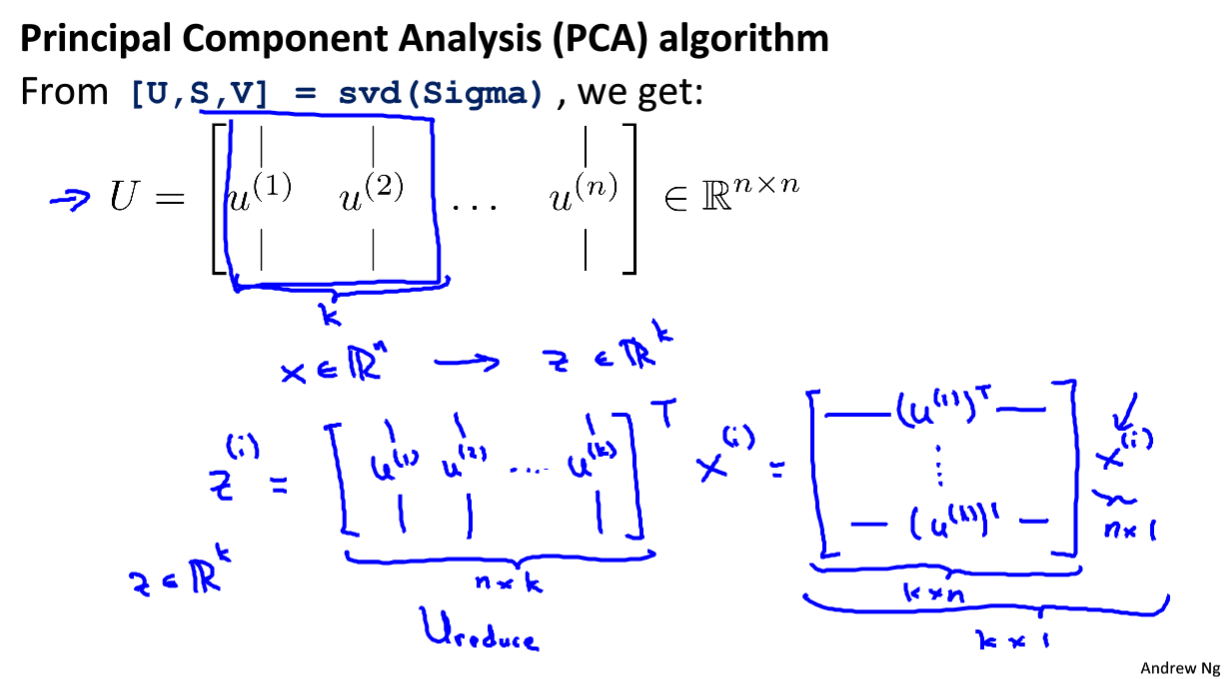 Principal Component Analysis (PCA) algorithm
From [U,S,V] = svd(Sigma) , we get:
→ U = [ u^(1) u^(2) … u^(n) ] ∈ ℝ^{n×n}
k
x ∈ ℝ^n → z ∈ ℝ^k
z^(i) = [ u^(1) u^(2) .... u^(k) ]^T x^(i) = [ — (u^(1))^T — ⋮ — (u^(k))^T — ] x^(i)
n×1
z ∈ ℝ^k
n×k
k×n
U_reduce
k×1
Andrew Ng